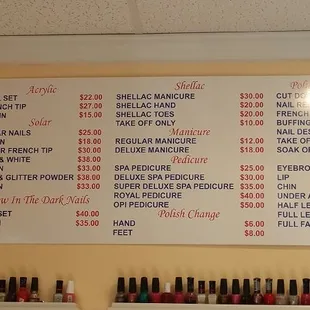 Acrylic
SET $22.00
TIP $27.00
$15.00
Solar
NAILS $25.00
$18.00
FRENCH TIP $30.00
& WHITE $38.00
$33.00
& GLITTER POWDER $38.00
$33.00
In The Dark Nails
SET $40.00
$35.00
Shellac
SHELLAC MANICURE $30.00
SHELLAC HAND $20.00
SHELLAC TOES $20.00
TAKE OFF ONLY $10.00
Manicure
REGULAR MANICURE $12.00
DELUXE MANICURE $18.00
Pedicure
SPA PEDICURE $25.00
DELUXE SPA PEDICURE $30.00
SUPER DELUXE SPA PEDICURE $35.00
ROYAL PEDICURE $40.00
OPI PEDICURE $50.00
Polish Change
HAND $6.00
FEET $8.00
CUT
NAIL
FRENCH
BUFFING
NAIL
TAKE
SOAK
LIP
CHIN
UNDER
HALF
FULL
FULL